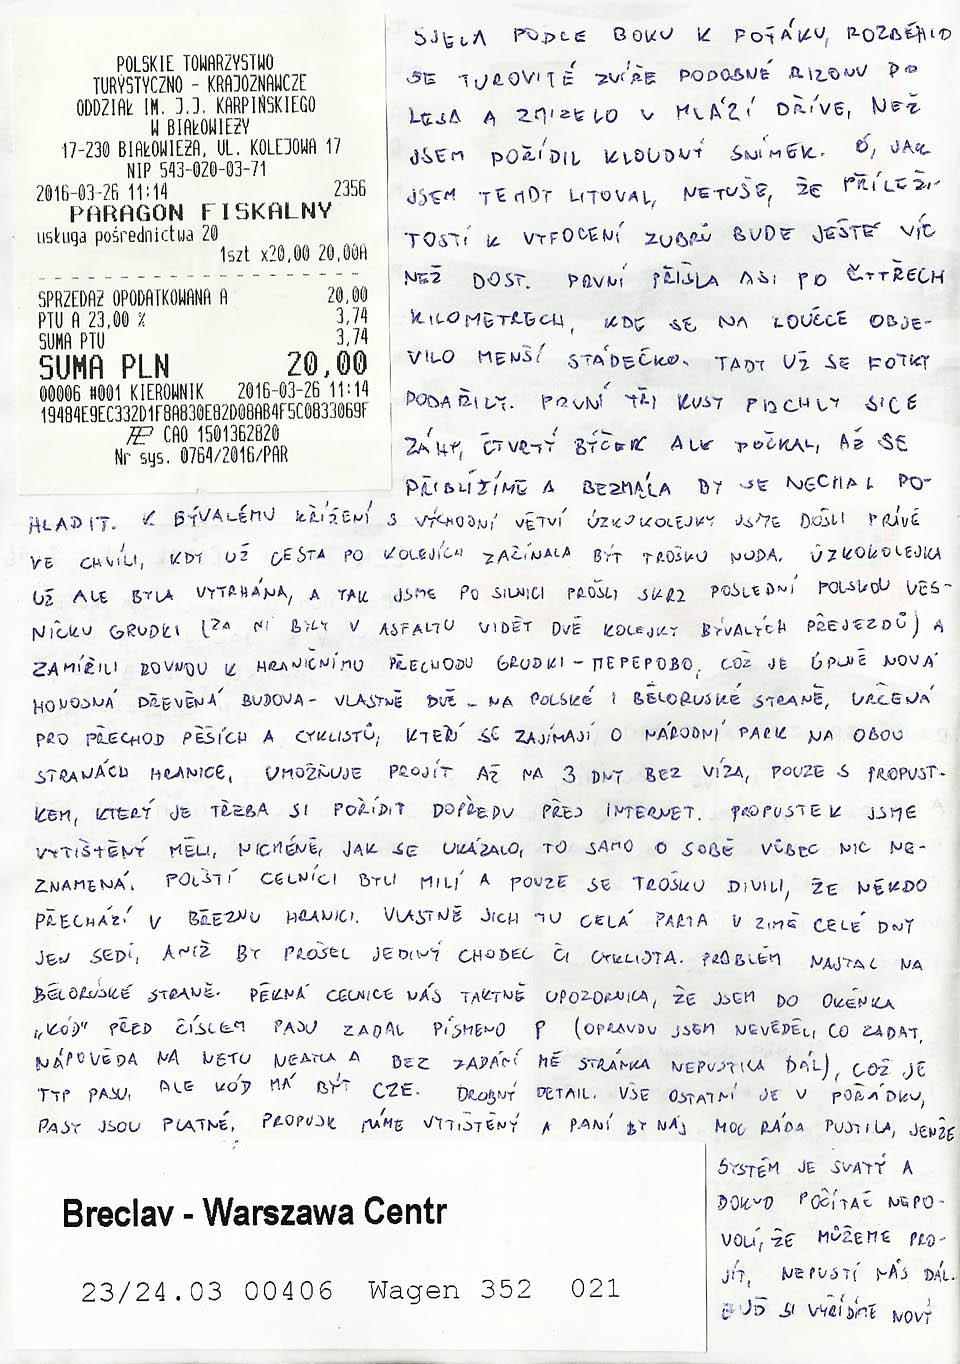 POLSKIE TOWARZYSTWO
TURYSTYCZNO - KRAJOZNAWCZE
ODDZIAŁ IM. J.J. KARPIŃSKIEGO
W BIAŁOWIEŻY
17-230 BIAŁOWIEŻA, UL. KOLEJOWA 17
NIP 543-020-03-71
2016-03-26 11:14 2356
PARAGON FISKALNY
usługa pośrednictwa 20
1szt x20,00 20,00A
SPRZEDAŻ OPODATKOWANA A 20,00
PTU A 23,00 % 3,74
SUMA PTU 3,74
SUMA PLN 20,00
00006 #001 KIEROWNIK 2016-03-26 11:14
19484E9EC332D1F8A830E82D08AB4F5C0833069F
CAO 1501362820
Nr sys. 0764/2016/PAR
SJELA PODLE BOKU K FOŤÁKU, ROZBĚHLO
SE TUROVITÉ ZVÍŘE PODOBNÉ BIZONU DO
LESA A ZMIZELO V MLÁZÍ DŘÍVE, NEŽ
JSEM POŘÍDIL KLOUDNÝ SNÍMEK. Ó, JAK
JSEM TEHDY LITOVAL, NETUŠE, ŽE PŘÍLEŽI-
TOSTÍ K VYFOCENÍ ZUBRŮ BUDE JEŠTĚ VÍC
NEŽ DOST. PRVNÍ PŘIŠLA ASI PO ČTYŘECH
KILOMETRECH, KDE SE NA LOUČCE OBJE-
VILO MENŠÍ STÁDEČKO. TADY UŽ SE FOTKY
PODAŘILY. PRVNÍ TŘI KUSY PRCHLY SICE
ZÁHY, ČTVRTÝ BÝČEK ALE POČKAL, AŽ SE
PŘIBLÍŽÍME A BEZMÁLA BY SE NECHAL PO-
HLADIT. K BÝVALÉMU KŘÍŽENÍ S VÝCHODNÍ VĚTVÍ ÚZKOKOLEJKY JSME DOŠLI PRÁVĚ
VE CHVÍLI, KDY UŽ CESTA PO KOLEJÍCH ZAČÍNALA BÝT TROŠKU NUDA. ÚZKOKOLEJKA
UŽ ALE BYLA VYTRHÁNA, A TAK JSME PO SILNICI PROŠLI SKRZ POSLEDNÍ POLSKOU VES-
NIČKU GRUDKI (ZA NÍ BYLY V ASFALTU VIDĚT DVĚ KOLEJKY BÝVALÝCH PŘEJEZDŮ) A
ZAMÍŘILI ROVNOU K HRANIČNÍMU PŘECHODU GRUDKI - ПЕРЕРОВО, COŽ JE ÚPLNĚ NOVÁ
HONOSNÁ DŘEVĚNÁ BUDOVA - VLASTNĚ DVĚ - NA POLSKÉ I BĚLORUSKÉ STRANĚ, URČENÁ
PRO PŘECHOD PĚŠÍCH A CYKLISTŮ, KTEŘÍ SE ZAJÍMAJÍ O NÁRODNÍ PARK NA OBOU
STRANÁCH HRANICE, UMOŽŇUJE PROJÍT AŽ NA 3 DNY BEZ VÍZA, POUZE S PROPUST-
KEM, KTERÝ JE TŘEBA SI POŘÍDIT DOPŘEDU PŘES INTERNET. PROPUSTEK JSME
VYTIŠTĚNÝ MĚLI, NICMÉNĚ, JAK SE UKÁZALO, TO SAMO O SOBĚ VŮBEC NIC NE-
ZNAMENÁ. POLŠTÍ CELNÍCI BYLI MILÍ A POUZE SE TROŠKU DIVILI, ŽE NĚKDO
PŘECHÁZÍ V BŘEZNU HRANICI. VLASTNĚ JICH TU CELÁ PARTA V ZIMĚ CELÉ DNY
JEN SEDÍ, ANIŽ BY PROŠEL JEDINÝ CHODEC ČI CYKLISTA. PROBLÉM NASTAL NA
BĚLORUSKÉ STRANĚ. PĚKNÁ CELNICE NÁS TAKTNĚ UPOZORNILA, ŽE JSEM DO OKÉNKA
„KÓD" PŘED ČÍSLEM PASU ZADAL PÍSMENO P (OPRAVDU JSEM NEVĚDĚL, CO ZADAT,
NÁPOVĚDA NA NETU NEBYLA A BEZ ZADÁNÍ MĚ STRÁNKA NEPUSTILA DÁL), COŽ JE
TYP PASU, ALE KÓD MÁ BÝT CZE. DROBNÝ DETAIL. VŠE OSTATNÍ JE V POŘÁDKU,
PASY JSOU PLATNÉ, PROPUSK MÁME VYTIŠTĚNÝ A PANÍ BY NÁS MOC RÁDA PUSTILA, JENŽE
SYSTÉM JE SVATÝ A
DOKUD POČÍTAČ NEPO-
VOLÍ, ŽE MŮŽEME PRO-
JÍT, NEPUSTÍ NÁS DÁL.
BUĎ SI VYŘÍDÍME NOVÝ
Breclav - Warszawa Centr
23/24.03 00406 Wagen 352 021